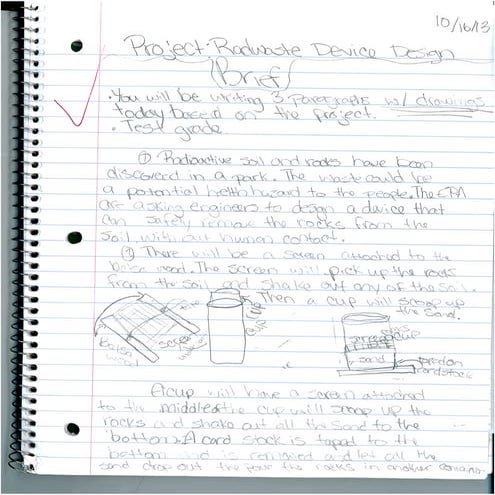 10/16/13
Project: Radwaste Device Design
(Brief)
• You will be writing 3 Paragraphs w/ drawings
today based on the project.
• Test grade
① Radioactive soil and rocks have been
discoverd in a park. The waste could be
a potential helth hazard to the people. The EPA
are asking engineers to design a device that
can safely remove the rocks from the
soil with out human contact.
① There will be a screen attatched to the
balsa wood. The screen will pick up the rocks
from the soil and shake out any of the soil.
Then a cup will scoop up
the sand.
balsa
wood
screen
cup
sand
cardstock
A cup will have a screen attatched
to the middle of the cup will scoop up the
rocks and shake out all the sand to the
bottom. A card stock is taped to the
bottom and is removed and let all the
sand drop out the pour the rocks in another